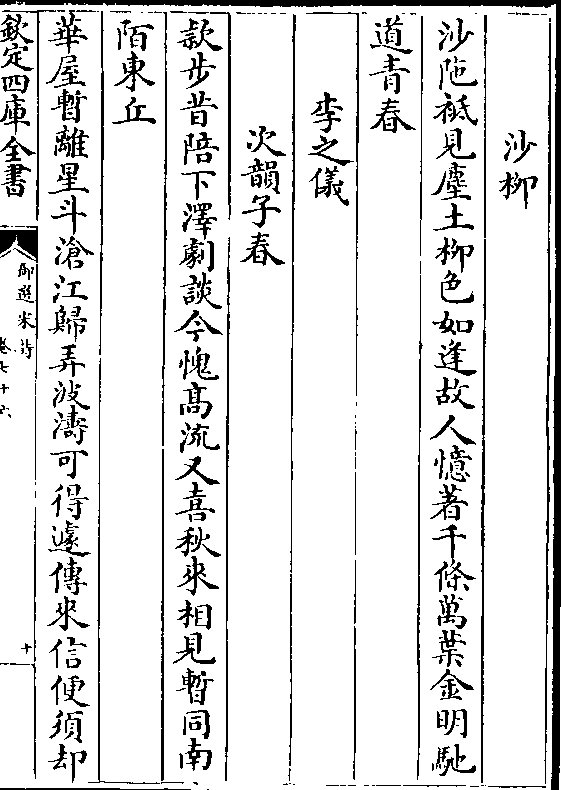 沙柳
沙陁祗見塵土柳色如逢故人憶著千條萬葉金明馳
道青春
李之儀
次韻子春
款步昔陪下澤劇談今愧髙流又喜秋來相見暫同南
陌東丘
華屋暫離星斗滄江歸弄波濤可得遽傳來信便須却
欽定四庫全書
御選宋詩
卷七十六
十